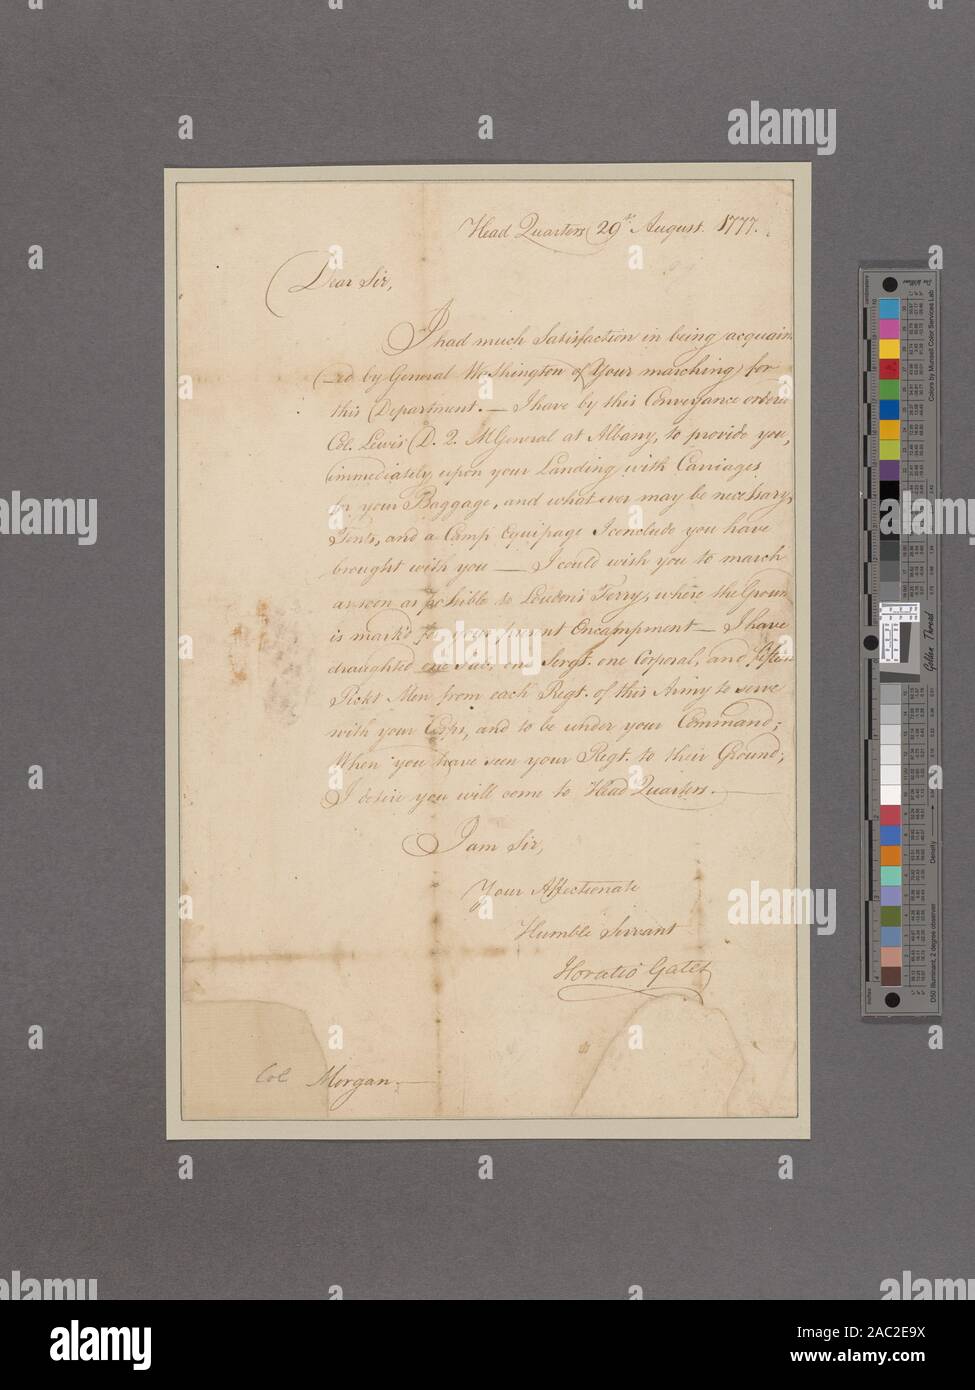 Head Quarters 29th August. 1777.
Dear Sir,
I had much Satisfaction in being acquain
-ed by General Washington of Your marching for
this Department. — I have by this Conveyance ordered
Col. Lewis D. Q. M General at Albany, to provide you,
immediately upon your Landing with Carriages
for your Baggage, and what ever may be necessary,
Tents, and a Camp Equipage I conclude you have
brought with you — I could wish you to march
as soon as possible to Loudon's Ferry, where the Ground
is mark'd for your present Encampment — I have
draughted one sub, one Sergt. one Corporal, and fifteen
Pickt Men from each Regt. of this Army to serve
with your Corps, and to be under your Command;
When you have seen your Regt. to their Ground;
I desire you will come to Head Quarters. —
I am Sir,
Your Affectionate
Humble Servant
Horatio Gates
Col Morgan. —
Colors by Munsell Color Services Lab
Golden Thread
Density
D50 Illuminant, 2 degree observer
centimeters
inches
alamy
a
alamy
Image ID: 2AC2E9X
www.alamy.com